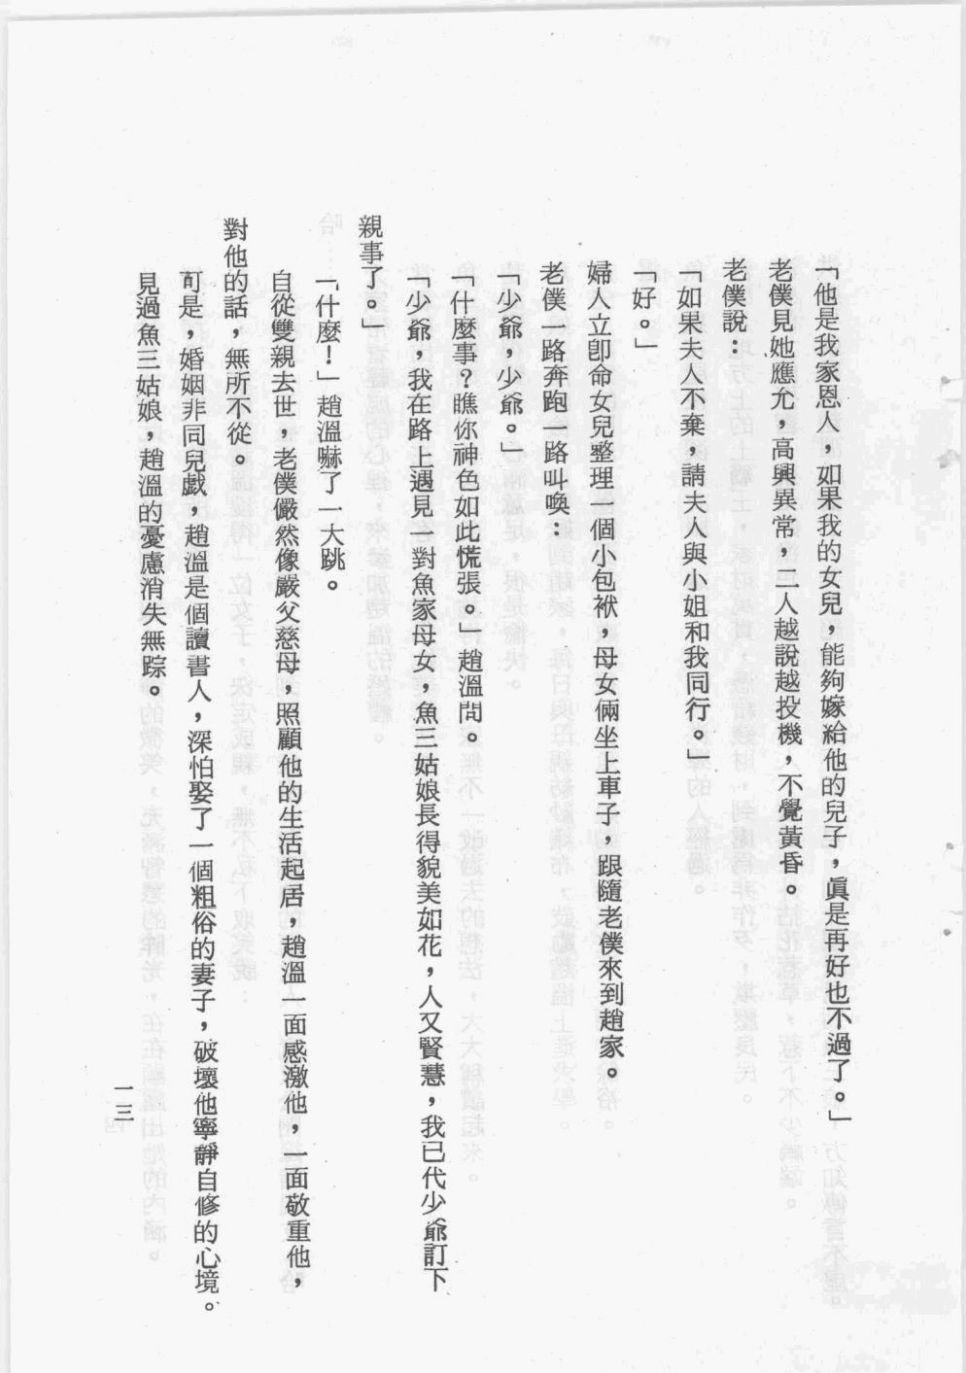 「他是我家恩人，如果我的女兒，能夠嫁給他的兒子，眞是再好也不過了。」
老僕見她應允，高興異常，二人越說越投機，不覺黃昏。
老僕說：
「如果夫人不棄，請夫人與小姐和我同行。」
「好。」
婦人立卽命女兒整理一個小包袱，母女倆坐上車子，跟隨老僕來到趙家。
老僕一路奔跑一路叫喚：
「少爺，少爺。」
「什麼事？瞧你神色如此慌張。」趙溫問。
「少爺，我在路上遇見一對魚家母女，魚三姑娘長得貌美如花，人又賢慧，我已代少爺訂下
親事了。」
「什麼！」趙溫嚇了一大跳。
自從雙親去世，老僕儼然像嚴父慈母，照顧他的生活起居，趙溫一面感激他，一面敬重他，
對他的話，無所不從。
可是，婚姻非同兒戲，趙溫是個讀書人，深怕娶了一個粗俗的妻子，破壞他寧靜自修的心境。
見過魚三姑娘，趙溫的憂慮消失無踪。
一三